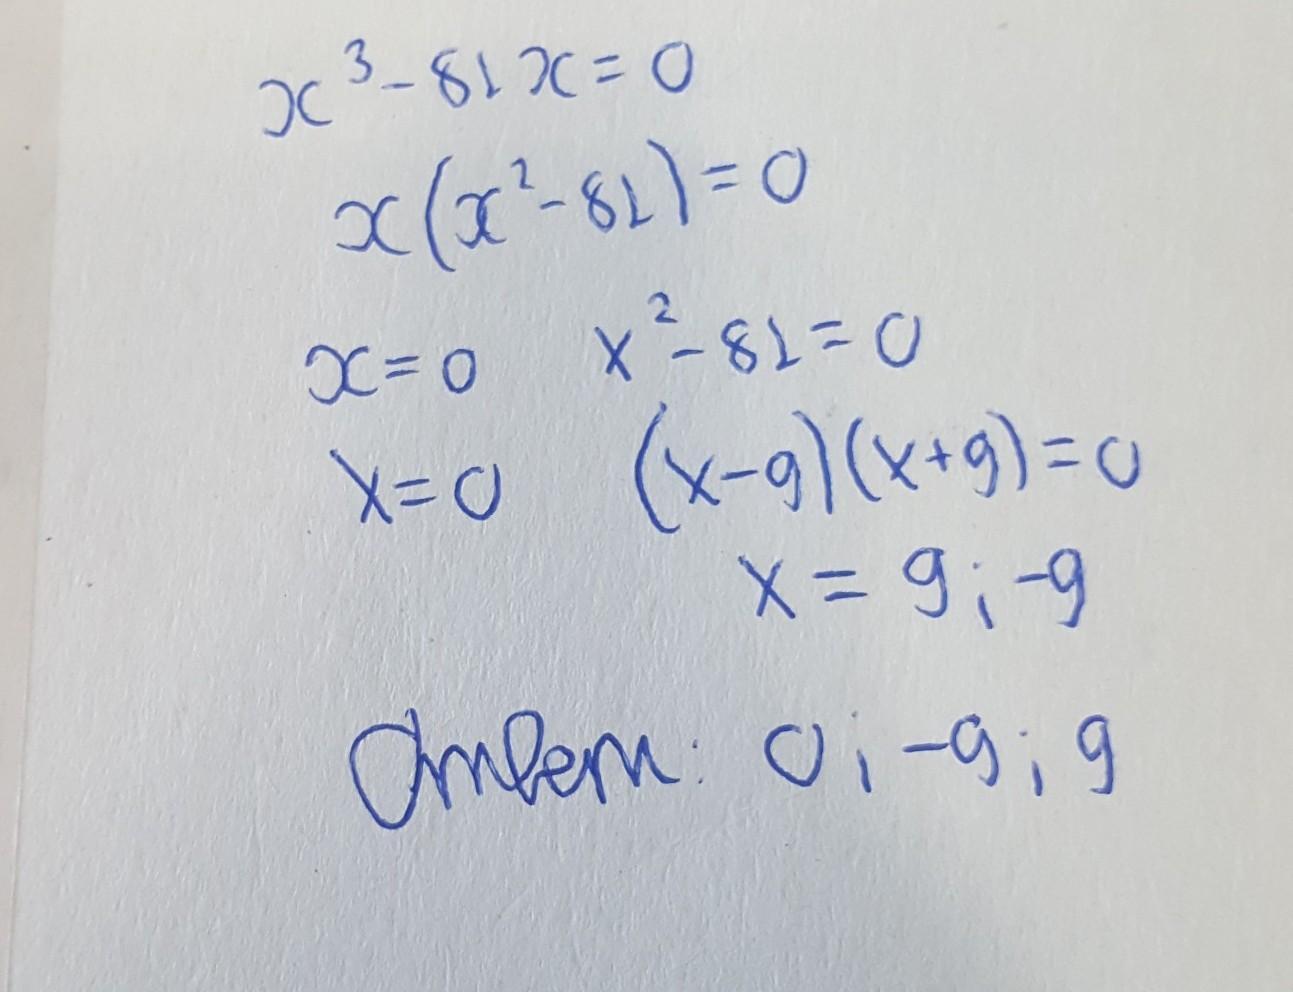 x³ - 81x = 0
x(x² - 81) = 0
x = 0 x² - 81 = 0
x = 0 (x - 9)(x + 9) = 0
x = 9; -9
Ответ: 0; -9; 9